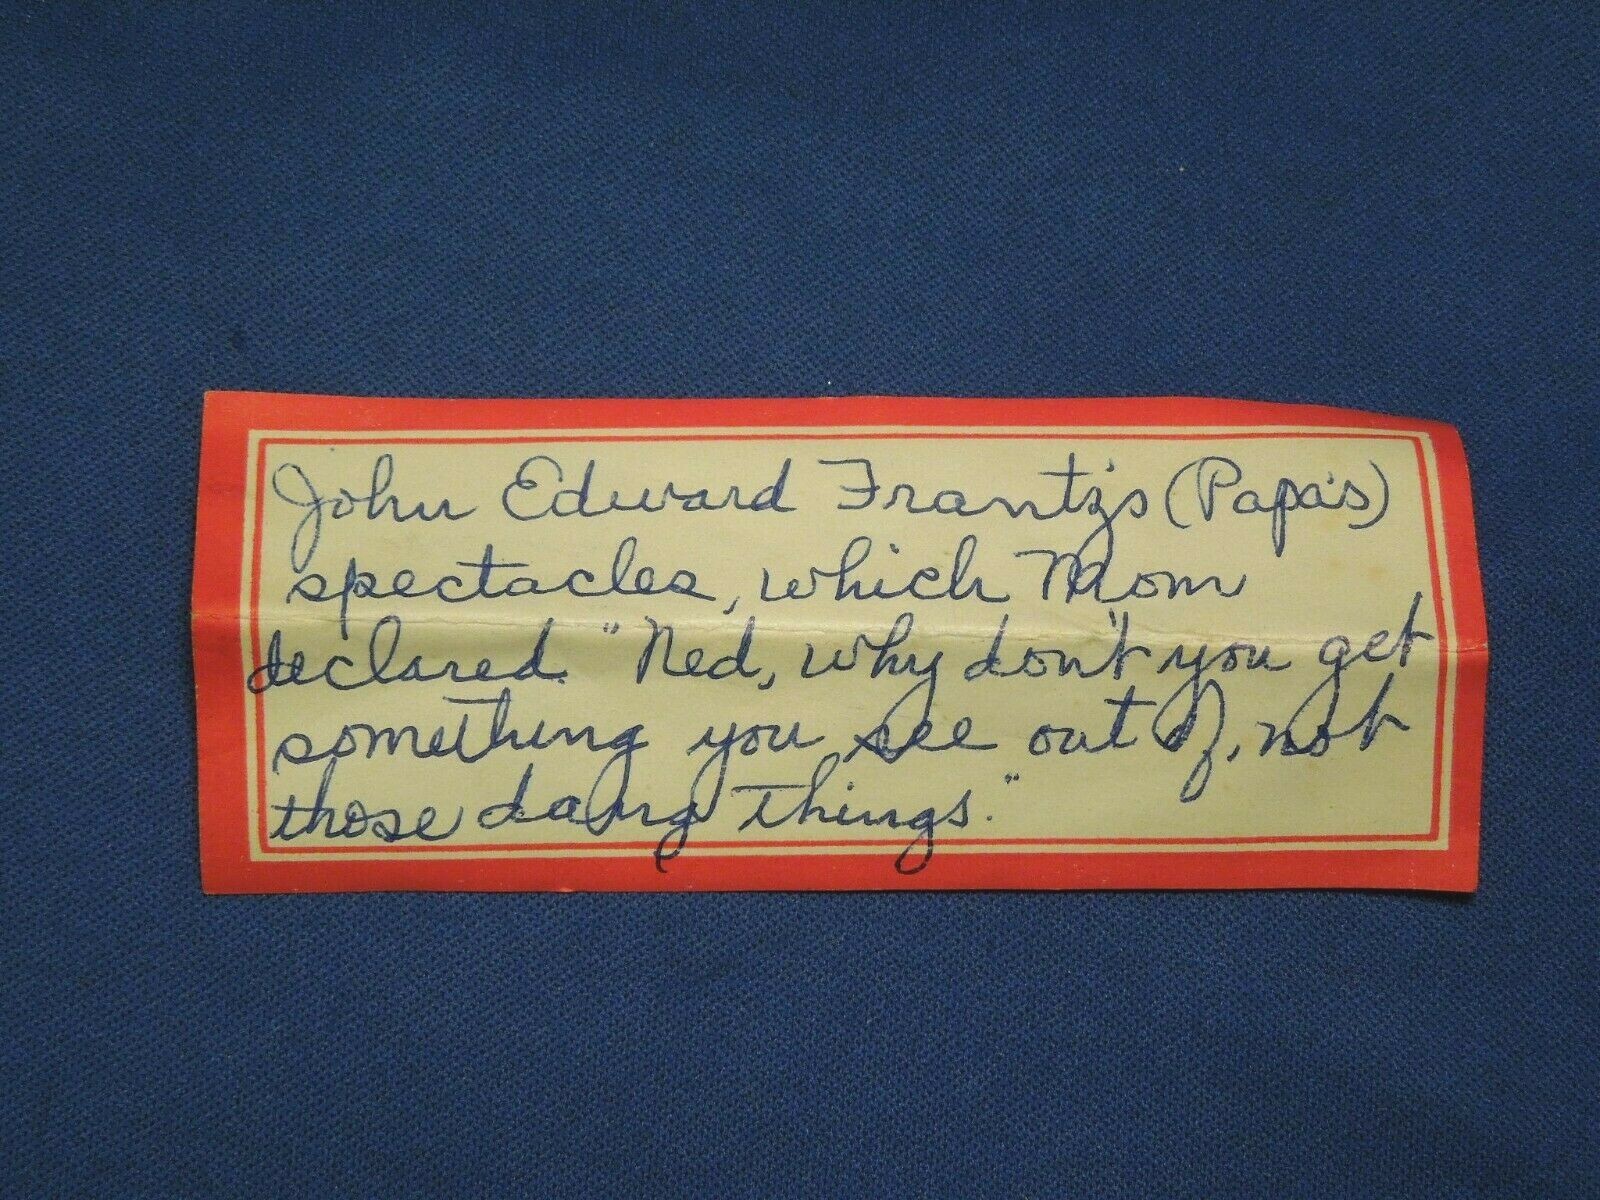 John Edward Frantz's (Papa's)
spectacles, which Mom
declared. "Ned, why don't you get
something you see out of, not
those dang things."